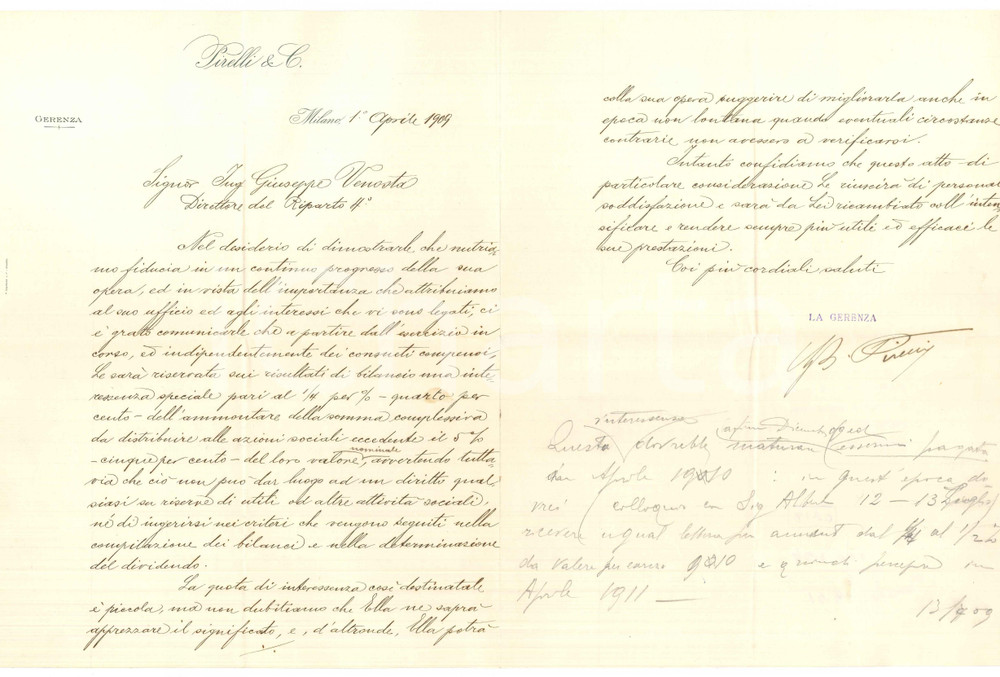 Pirelli & C.
GERENZA
Milano, 1° Aprile 1909
Signor Ing. Giuseppe Venosta
Direttore del Riparto 4°
Nel desiderio di dimostrarle che nutria-
mo fiducia in un continuo progresso della sua
opera, ed in vista dell'importanza che attribuiamo
al suo ufficio ed agli interessi che vi sono legati, ci
è grato comunicarle che a partire dall'esercizio in
corso, ed indipendentemente dei consueti compensi,
Le sarà riservata sui risultati di bilancio una inte-
ressenza speciale pari al 1/4 per % - quarto per
cento - dell'ammontare della somma complessiva
da distribuire alle azioni sociali eccedente il 5 %
- cinque per cento - del loro valore nominale, avvertendo tutta-
via che ciò non può dar luogo ad un diritto qual-
siasi su riserve di utili od altre attività sociali,
nè di ingerirsi nei criteri che vengono seguiti nella
compilazione dei bilanci e nella determinazione
del dividendo.
La quota di interessenza così destinatale
è piccola, ma non dubitiamo che Ella ne saprà
apprezzare il significato, e, d'altronde, Ella potrà
colla sua opera suggerire di migliorarla anche in
epoca non lontana quando eventuali circostanze
contrarie non avessero a verificarsi.
Intanto confidiamo che questo atto di
particolare considerazione Le riuscirà di personal
soddisfazione e sarà da Lei ricambiato coll'inten
sificare e rendere sempre più utili ed efficaci le
sue prestazioni.
Coi più cordiali saluti
LA GERENZA
GB. Pirelli
l'interessenza
Questa dovrebbe maturare pagata
Aprile 1910 : in quest'epoca do
vrei colloquio con Sig Alberto 12 - 13 Luglio
ricevere ugual lettera per aumento dal 1/4 al 1/2 %
da valere per 1910 e quindi percepire in
Aprile 1911